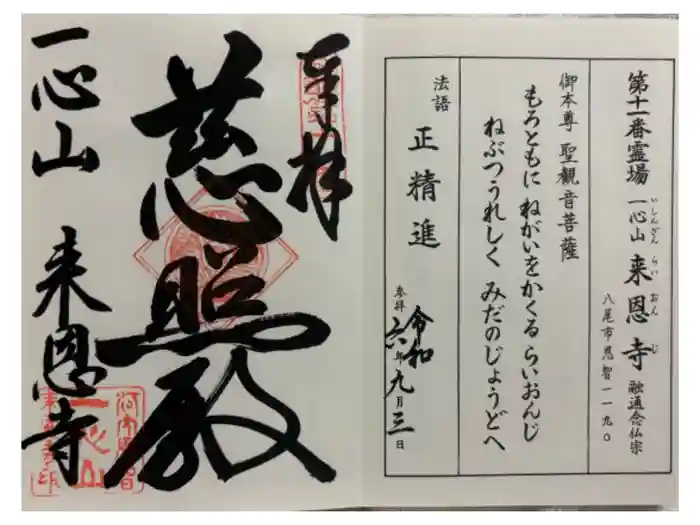 第十一番霊場 一心山 来恩寺 融通念仏宗
いしんざん らい おん じ
八尾市恩智一一九〇
御本尊 聖観音菩薩
もろともに ねがいをかくる らいおんじ
ねぶつうれしく みだのじょうどへ
法語 正精進
参拝 令和六年九月三日
奉拝
慈照殿
一心山 来恩寺